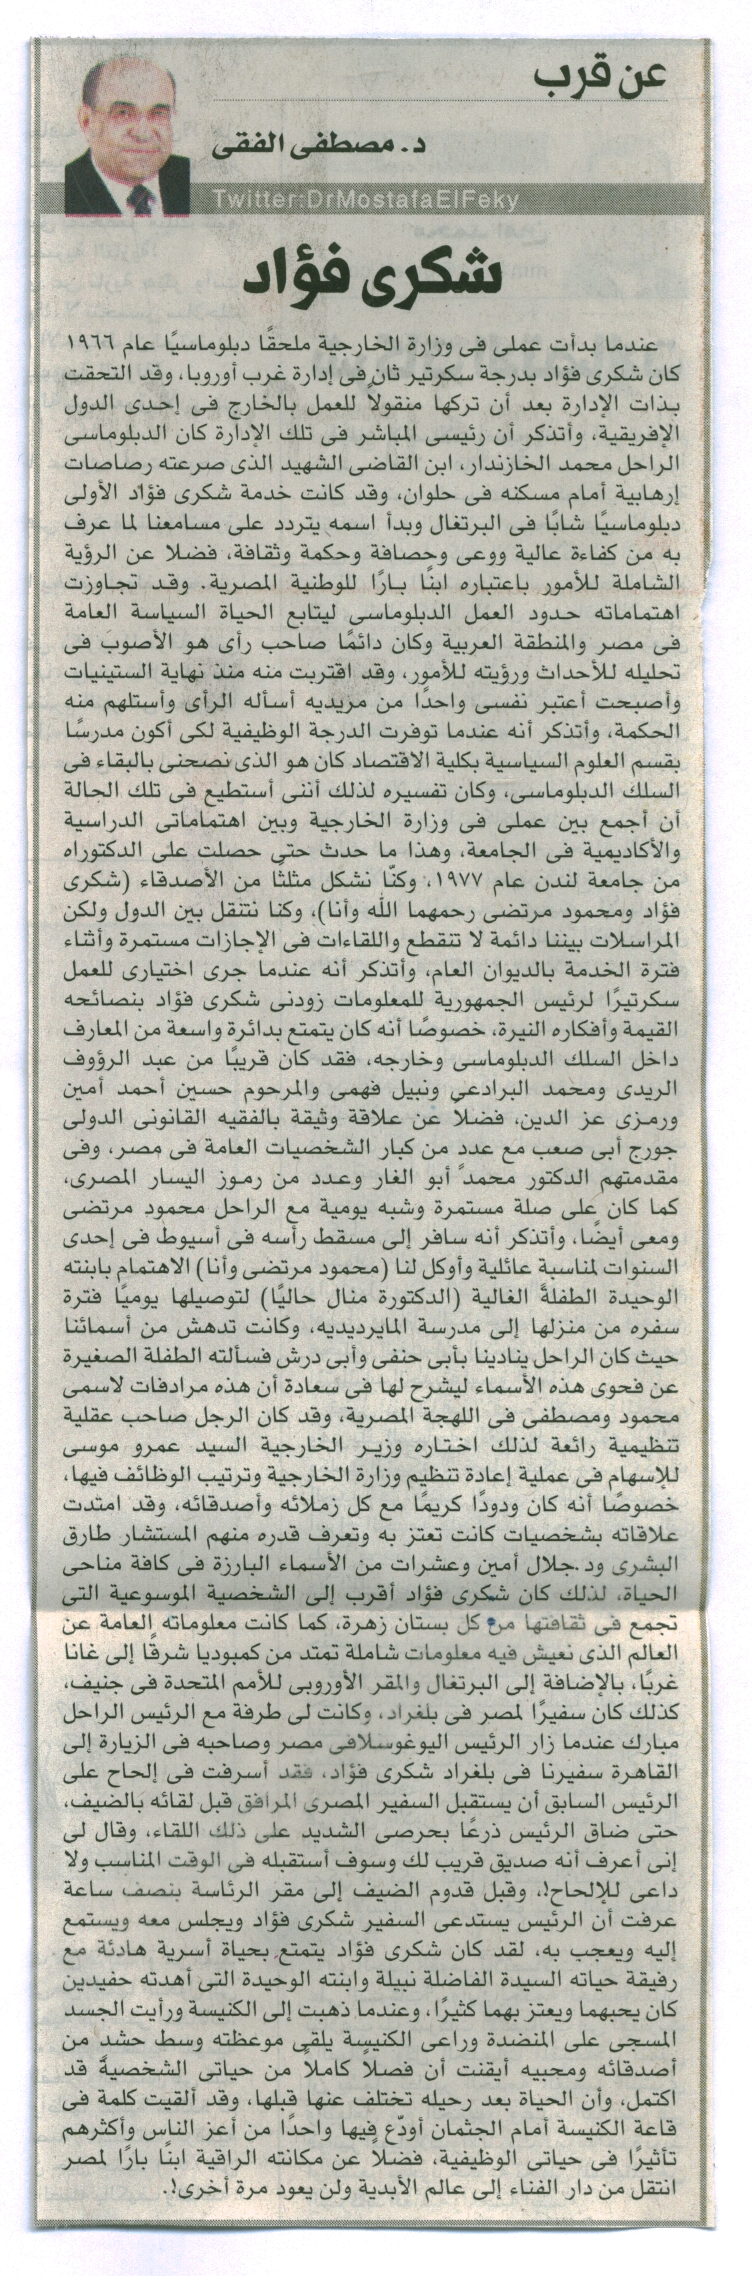 عن قرب
د. مصطفى الفقى
Twitter:DrMostafaElFeky
شكرى فؤاد
عندما بدأت عملى فى وزارة الخارجية ملحقًا دبلوماسيًا عام ١٩٦٦
كان شكرى فؤاد بدرجة سكرتير ثان فى إدارة غرب أوروبا، وقد التحقت
بذات الإدارة بعد أن تركها منقولاً للعمل بالخارج فى إحدى الدول
الإفريقية، وأتذكر أن رئيسى المباشر فى تلك الإدارة كان الدبلوماسى
الراحل محمد الخازندار، ابن القاضى الشهيد الذى صرعته رصاصات
إرهابية أمام مسكنه فى حلوان، وقد كانت خدمة شكرى فؤاد الأولى
دبلوماسيًا شابًا فى البرتغال وبدأ اسمه يتردد على مسامعنا لما عرف
به من كفاءة عالية ووعى وحصافة وحكمة وثقافة، فضلا عن الرؤية
الشاملة للأمور باعتباره ابنًا بارًا للوطنية المصرية. وقد تجاوزت
اهتماماته حدود العمل الدبلوماسى ليتابع الحياة السياسة العامة
فى مصر والمنطقة العربية وكان دائمًا صاحب رأى هو الأصوب فى
تحليله للأحداث ورؤيته للأمور، وقد اقتربت منه منذ نهاية الستينيات
وأصبحت أعتبر نفسى واحدًا من مريديه أسأله الرأى وأستلهم منه
الحكمة، وأتذكر أنه عندما توفرت الدرجة الوظيفية لكى أكون مدرسًا
بقسم العلوم السياسية بكلية الاقتصاد كان هو الذى نصحنى بالبقاء فى
السلك الدبلوماسى، وكان تفسيره لذلك أننى أستطيع فى تلك الحالة
أن أجمع بين عملى فى وزارة الخارجية وبين اهتماماتى الدراسية
والأكاديمية فى الجامعة، وهذا ما حدث حتى حصلت على الدكتوراه
من جامعة لندن عام ١٩٧٧، وكنّا نشكل مثلثًا من الأصدقاء (شكرى
فؤاد ومحمود مرتضى رحمهما الله وأنا)، وكنا نتنقل بين الدول ولكن
المراسلات بيننا دائمة لا تنقطع واللقاءات فى الإجازات مستمرة وأثناء
فترة الخدمة بالديوان العام، وأتذكر أنه عندما جرى اختيارى للعمل
سكرتيرًا لرئيس الجمهورية للمعلومات زودنى شكرى فؤاد بنصائحه
القيمة وأفكاره النيرة، خصوصًا أنه كان يتمتع بدائرة واسعة من المعارف
داخل السلك الدبلوماسى وخارجه، فقد كان قريبًا من عبد الرؤوف
الريدى ومحمد البرادعى ونبيل فهمى والمرحوم حسين أحمد أمين
ورمزى عز الدين، فضلاً عن علاقة وثيقة بالفقيه القانونى الدولى
جورج أبى صعب مع عدد من كبار الشخصيات العامة فى مصر، وفى
مقدمتهم الدكتور محمد أبو الغار وعدد من رموز اليسار المصرى،
كما كان على صلة مستمرة وشبه يومية مع الراحل محمود مرتضى
ومعى أيضًا، وأتذكر أنه سافر إلى مسقط رأسه فى أسيوط فى إحدى
السنوات لمناسبة عائلية وأوكل لنا (محمود مرتضى وأنا) الاهتمام بابنته
الوحيدة الطفلة الغالية (الدكتورة منال حاليًا) لتوصيلها يوميًا فترة
سفره من منزلها إلى مدرسة المايرديديه، وكانت تدهش من أسمائنا
حيث كان الراحل ينادينا بأبى حنفى وأبى درش فسألته الطفلة الصغيرة
عن فحوى هذه الأسماء ليشرح لها فى سعادة أن هذه مرادفات لاسمى
محمود ومصطفى فى اللهجة المصرية، وقد كان الرجل صاحب عقلية
تنظيمية رائعة لذلك اختاره وزير الخارجية السيد عمرو موسى
للإسهام فى عملية إعادة تنظيم وزارة الخارجية وترتيب الوظائف فيها،
خصوصًا أنه كان ودودًا كريمًا مع كل زملائه وأصدقائه، وقد امتدت
علاقاته بشخصيات كانت تعتز به وتعرف قدره منهم المستشار طارق
البشرى ود.جلال أمين وعشرات من الأسماء البارزة فى كافة مناحى
الحياة، لذلك كان شكرى فؤاد أقرب إلى الشخصية الموسوعية التى
تجمع فى ثقافتها من كل بستان زهرة، كما كانت معلوماته العامة عن
العالم الذى نعيش فيه معلومات شاملة تمتد من كمبوديا شرقًا إلى غانا
غربًا، بالإضافة إلى البرتغال والمقر الأوروبى للأمم المتحدة فى جنيف،
كذلك كان سفيرًا لمصر فى بلغراد، وكانت لى طرفة مع الرئيس الراحل
مبارك عندما زار الرئيس اليوغوسلافى مصر وصاحبه فى الزيارة إلى
القاهرة سفيرنا فى بلغراد شكرى فؤاد، فقد أسرفت فى إلحاح على
الرئيس السابق أن يستقبل السفير المصرى المرافق قبل لقائه بالضيف،
حتى ضاق الرئيس ذرعًا بحرصى الشديد على ذلك اللقاء، وقال لى
إنى أعرف أنه صديق قريب لك وسوف أستقبله فى الوقت المناسب ولا
داعى للإلحاح!، وقبل قدوم الضيف إلى مقر الرئاسة بنصف ساعة
عرفت أن الرئيس يستدعى السفير شكرى فؤاد ويجلس معه ويستمع
إليه ويعجب به، لقد كان شكرى فؤاد يتمتع بحياة أسرية هادئة مع
رفيقة حياته السيدة الفاضلة نبيلة وابنته الوحيدة التى أهدته حفيدين
كان يحبهما ويعتز بهما كثيرًا، وعندما ذهبت إلى الكنيسة ورأيت الجسد
المسجى على المنضدة وراعى الكنيسة يلقى موعظته وسط حشد من
أصدقائه ومحبيه أيقنت أن فصلاً كاملاً من حياتى الشخصية قد
اكتمل، وأن الحياة بعد رحيله تختلف عنها قبلها، وقد ألقيت كلمة فى
قاعة الكنيسة أمام الجثمان أودّع فيها واحدًا من أعز الناس وأكثرهم
تأثيرًا فى حياتى الوظيفية، فضلاً عن مكانته الراقية ابنًا بارًا لمصر
انتقل من دار الفناء إلى عالم الأبدية ولن يعود مرة أخرى!.